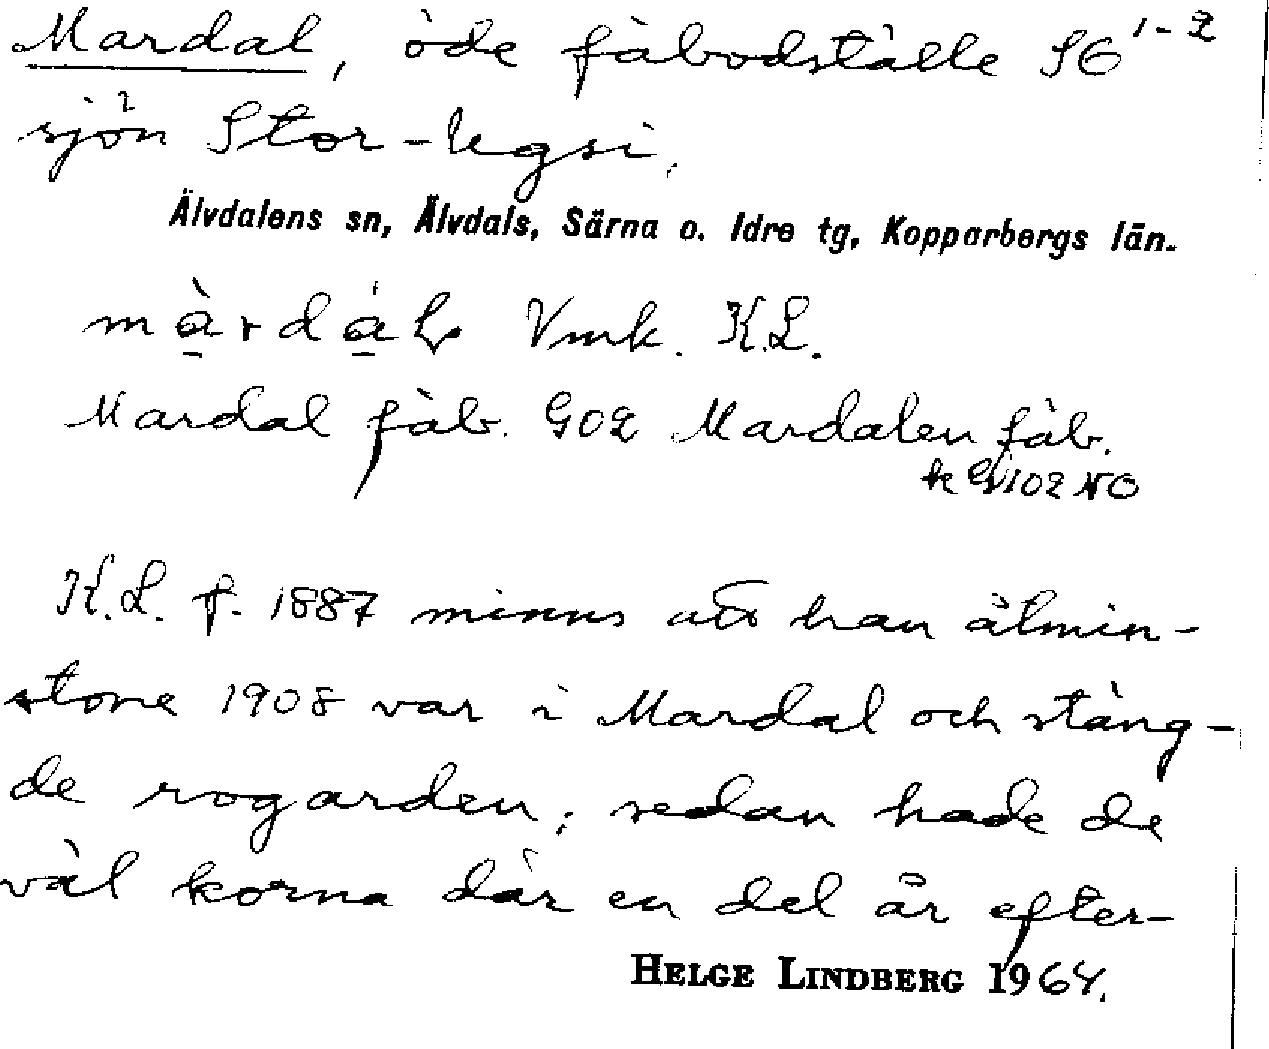 Mardal, öde fäbodställe SG 1-2
sjön Stor-Ugsi.
Älvdalens sn, Älvdals, Särna o. Idre tg, Kopparbergs län.
Vmk. K.L.
Mardal fäb. GO2 Mardalen fäb.
102 NO
K.L. f. 1887 minns att han åtmin-
stone 1908 var i Mardal och stäng-
de rogarden; sedan hade de
väl korna där en del år efter-
HELGE LINDBERG 1964.